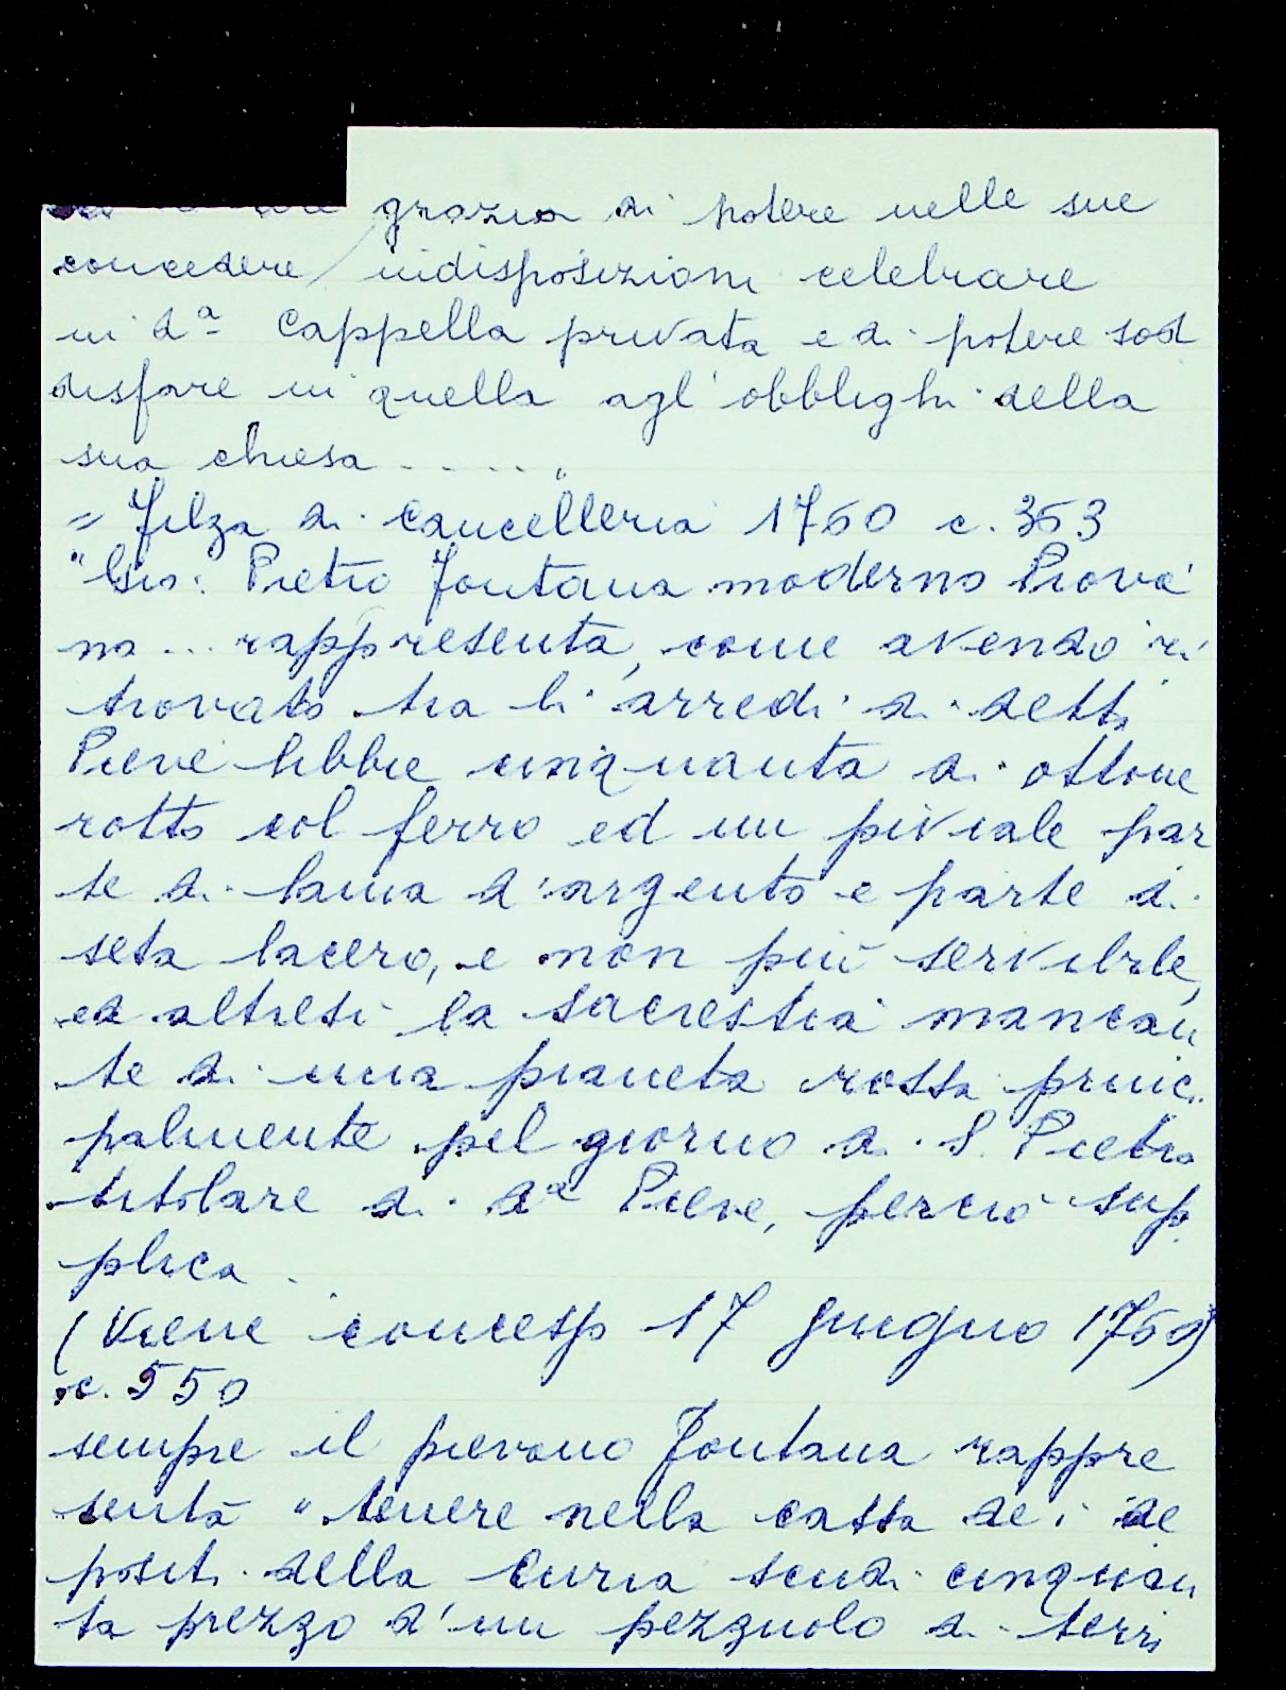 grazia di potere nelle sue
concedere / indisposizioni celebrare
in dª Cappella privata e di potere sod
disfare in quella agl'obblighi della
sua chiesa . . . . . "
= Filza di Cancelleria 1760 c. 363
"Gio: Pietro Fontana moderno Piova
no ... rappresenta, come avendo ri
trovato tra li arredi di detta
Pieve libbre cinquanta di ottone
rotto col ferro ed un piviale par
te di lama d'argento e parte di
seta lacero, e non più servibile,
ed altresì la sacrestia mancan
te di una pianeta rossa princi
palmente pel giorno di S. Pietro
titolare di dª Pieve, perciò sup
plica.
(Viene concesso 17 giugno 1760)
c. 550
sempre il pievano Fontana rappre
senta " tenere nella cassa dei de
positi della Curia scudi cinquan
ta prezzo d'un pezzuolo di terra